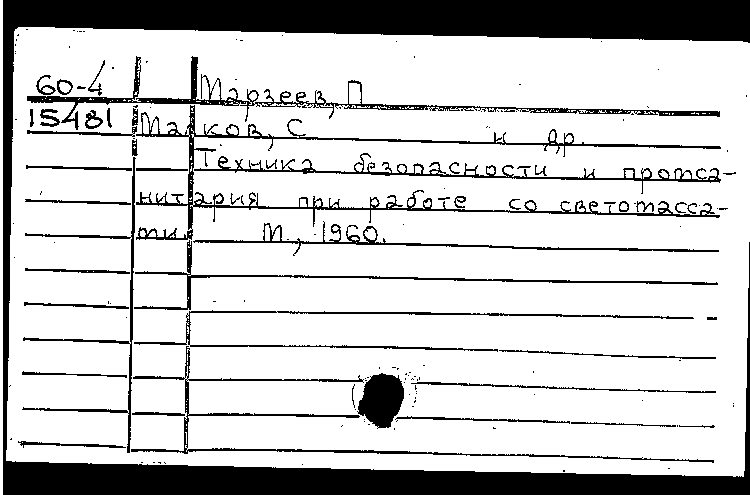 60-4 Марзеев, П
15481 Малков, С и др.
Техника безопасности и промса-
нитария при работе со светомасса-
ми. М., 1960.